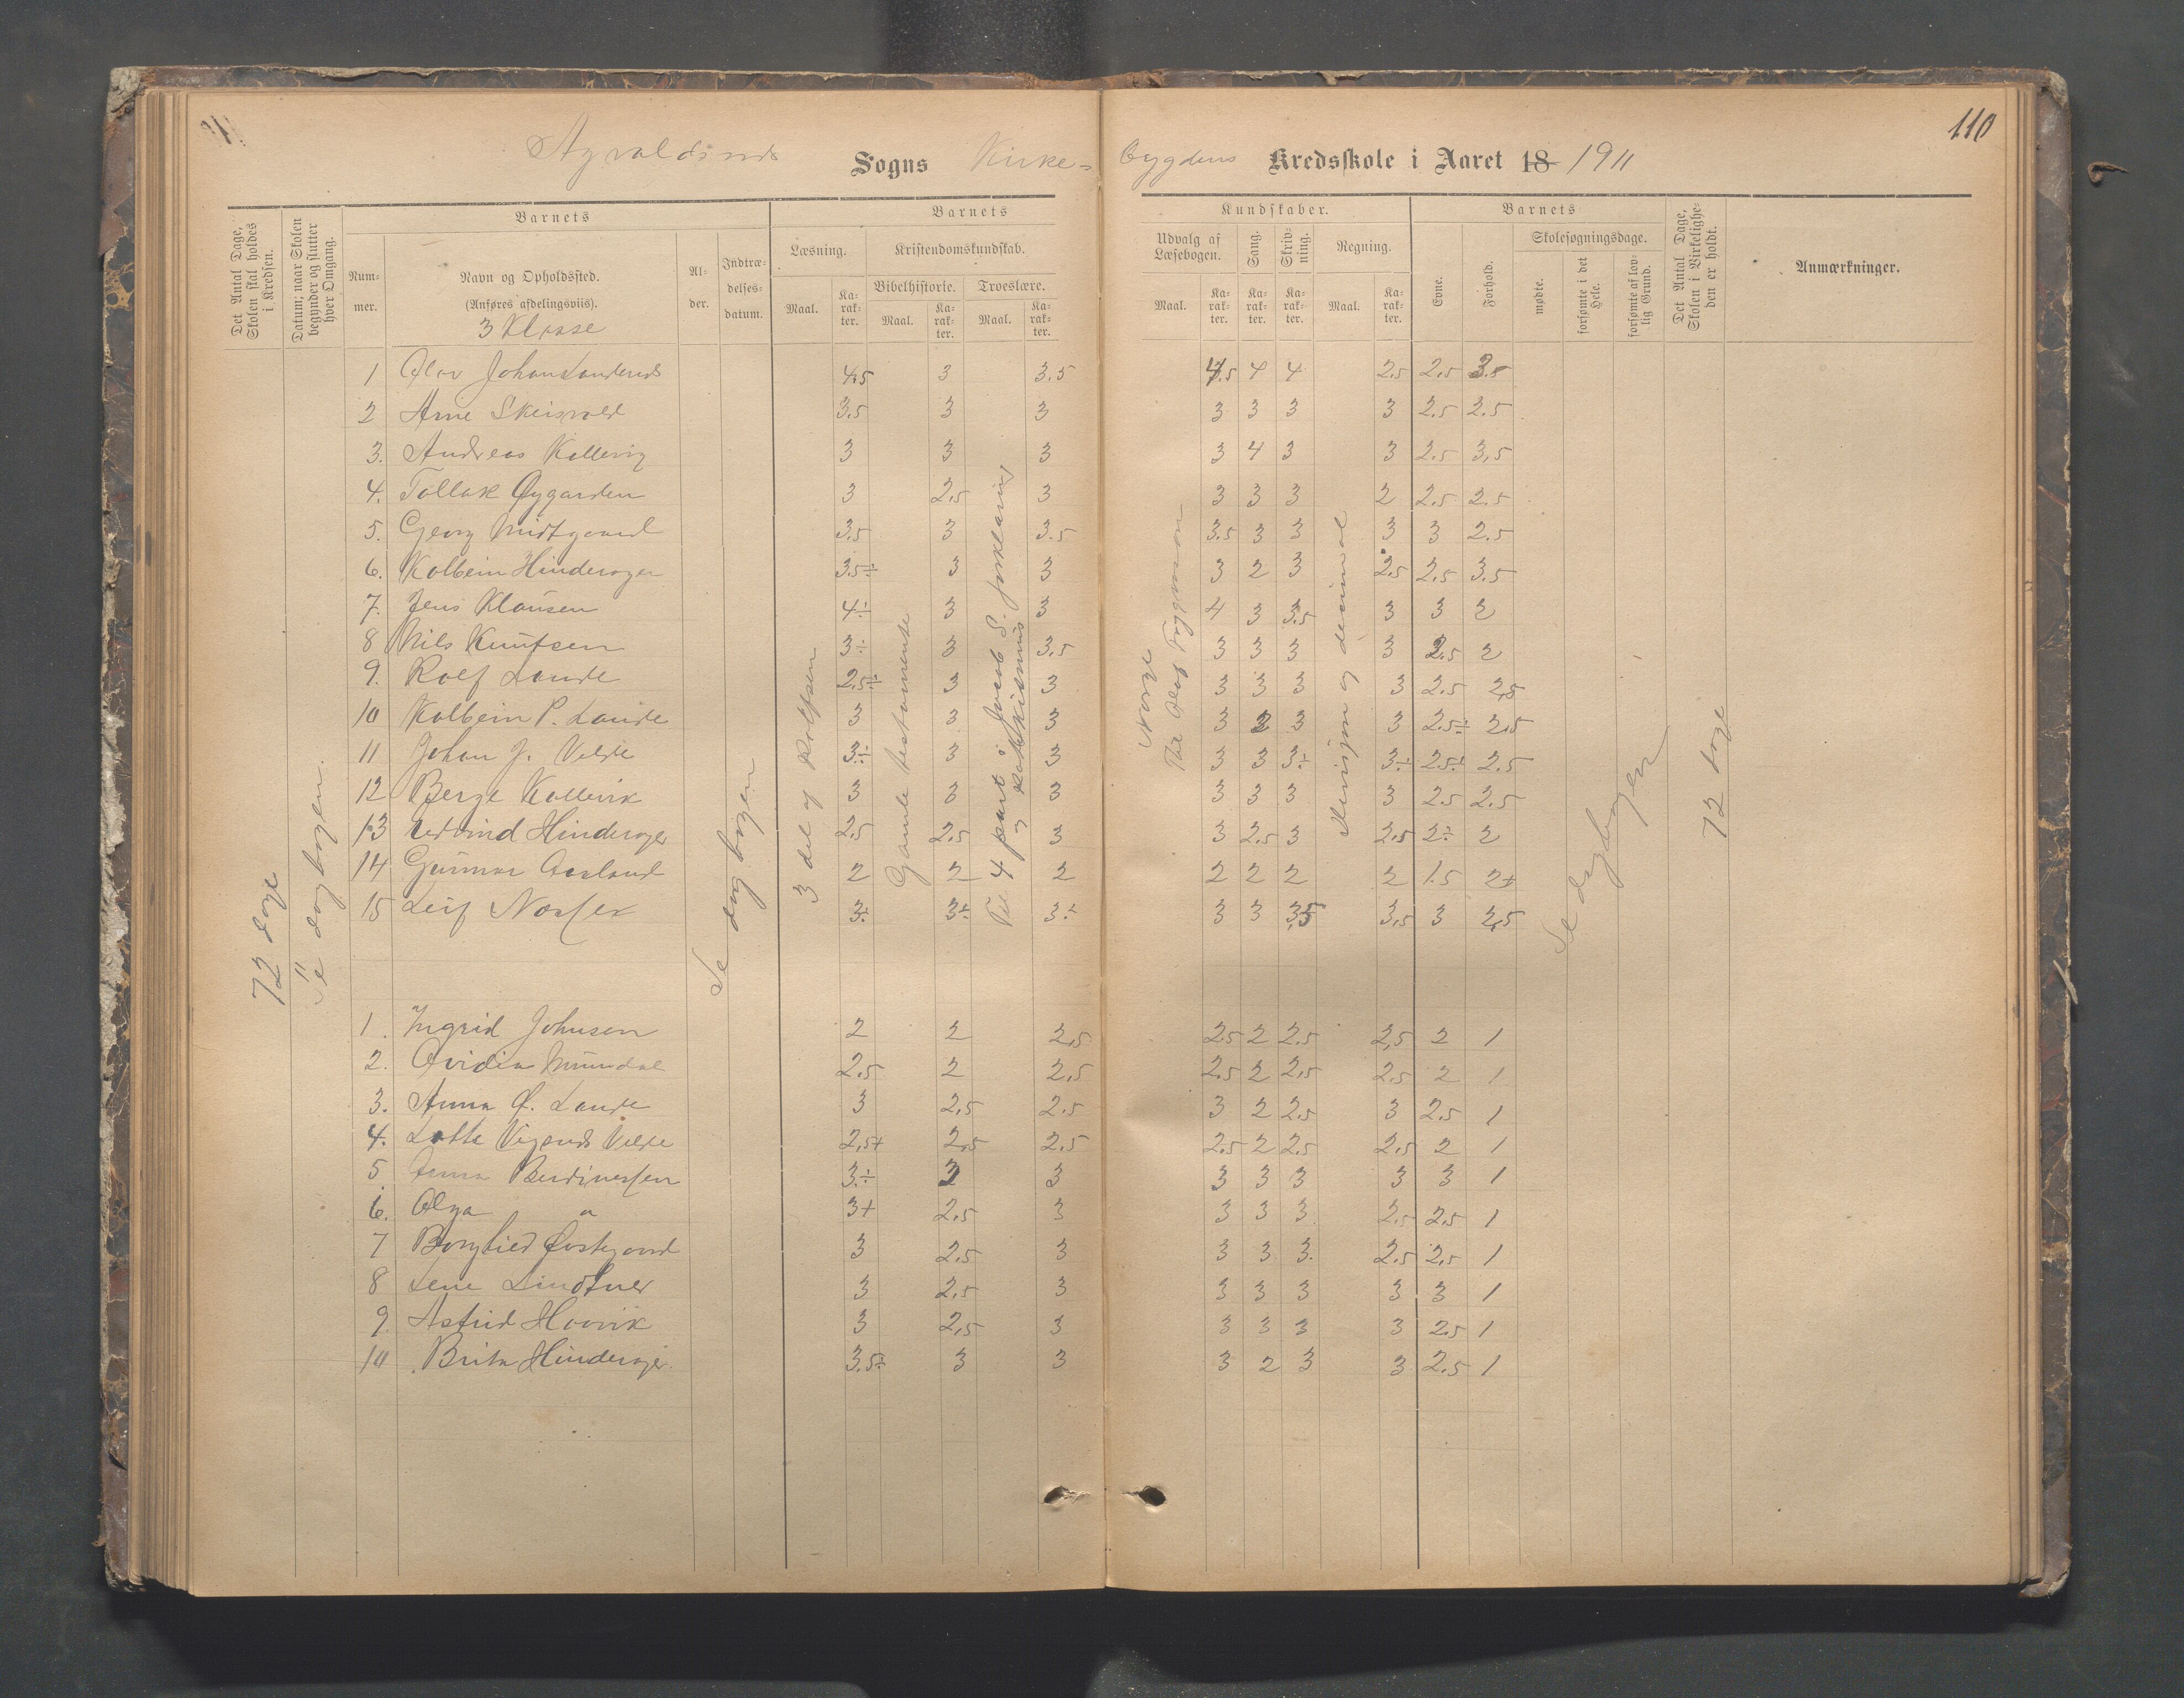 110
Sogns Kirke= bygdens Kredsskole i Aaret 18 1911
Det Antal Dage, Skolen skal holdes i Kredsen.
Datum; naar Skolen begynder og slutter hver Omgang.
Barnets
Nummer.
Navn og Opholdssted.
(Anføres afdelingsviis).
3 Klasse
Alder.
Indtrædelsesdatum.
Barnets Kundskaber.
Læsning.
Maal.
Karakter.
Kristendomskundskab.
Bibelhistorie.
Maal.
Karakter.
Troeslære.
Maal.
Karakter.
Udvalg af Læsebogen.
Maal.
Karakter.
Sang.
Karakter.
Skrivning.
Karakter.
Regning.
Maal.
Karakter.
Barnets
Evne.
Forhold.
Skolesøgningsdage.
mødte.
forsømte i det Hele.
forsømte af lovlig Grund.
Det Antal Dage, Skolen i Virkeligheden er holdt.
Anmærkninger.
72 dage
Se dagbogen.
Se dagbogen
3 del af Rolfsen
Gamle testamente
Til 4 part i Jacob S. forklaring
og
Norge
Til Olaf Trygvason
og decimal
Se dagbogen
72 dage
1 Olav 4,5 3 3,5 4,5 4 4 2,5 2,5 3.5
2 Arne Skeisvold 3,5 3 3 3 3 3 3 2.5 2.5
3. Andreas Kallevig 3 3 3 3 4 3 3 2.5 3,5
4. Tollak Øygarden 3 2,5 3 3 3 3 2 2.5 2.5
5. Georg Midtgaard 3.5 3 3.5 3.5 3 3 3 3 2.5
6. Kolbein Hinderager 3.5÷ 3 3 3 2 3 2,5 2,5 3.5
7. Jens Klausen 4÷ 3 3 4 3 3.5 3 3 2
8 Nils Knutsen 3÷ 3 3,5 3 3 3 3 2.5 2
9. Rolf Lande 2.5÷ 3 3 3 3 3 3 2.5 2,5
10 Kolbein P. Lande 3 3 3 3 2 3 3 2.5÷ 2,5
11 Johan J. Velde 3÷ 3 3 3 3 3÷ 3÷ 2.5÷ 2.5
12 Berge Kallevik 3 3 3 3 3 3 3 2.5 2.5
13 Hinderager 2.5 2,5 3 3 2.5 3 2,5 2÷ 2
14 Gunnar Aarland 2 2 2 2 2 2 2 1.5 2+
15 Leif 3÷ 3÷ 3÷ 3 3 3,5 3,5 3 2,5
1. Ingrid Johnsen 2 2 2,5 2.5 2 2.5 2,5 2 1
2. Ovidia Mundal 2.5 2 2,5 2.5 2 2,5 2.5 2 1
3. Anna O. Lande 3 2,5 2.5 3 2 2.5 3 2.5 1
4. Lotte Velde 2,5+ 2,5 2,5 2.5 2 2.5 2,5 2 1
5. 3÷ 3 3 3 3 3 3 1
6. Olga " 3+ 2,5 3 3 3 3 2.5 2,5 1
7 Borghild Østegaard 3 2,5 3 3 3 3. 2.5 2,5 1
8 Lene Lindtner 3 2,5 3 3 3 3 3 3 1
9. Astrid Haavik 3 2,5 3 3 3 3 3 2.5 1
10 Brita Hinderager 3.5÷ 3 3 3 2 3 3 2.5 1